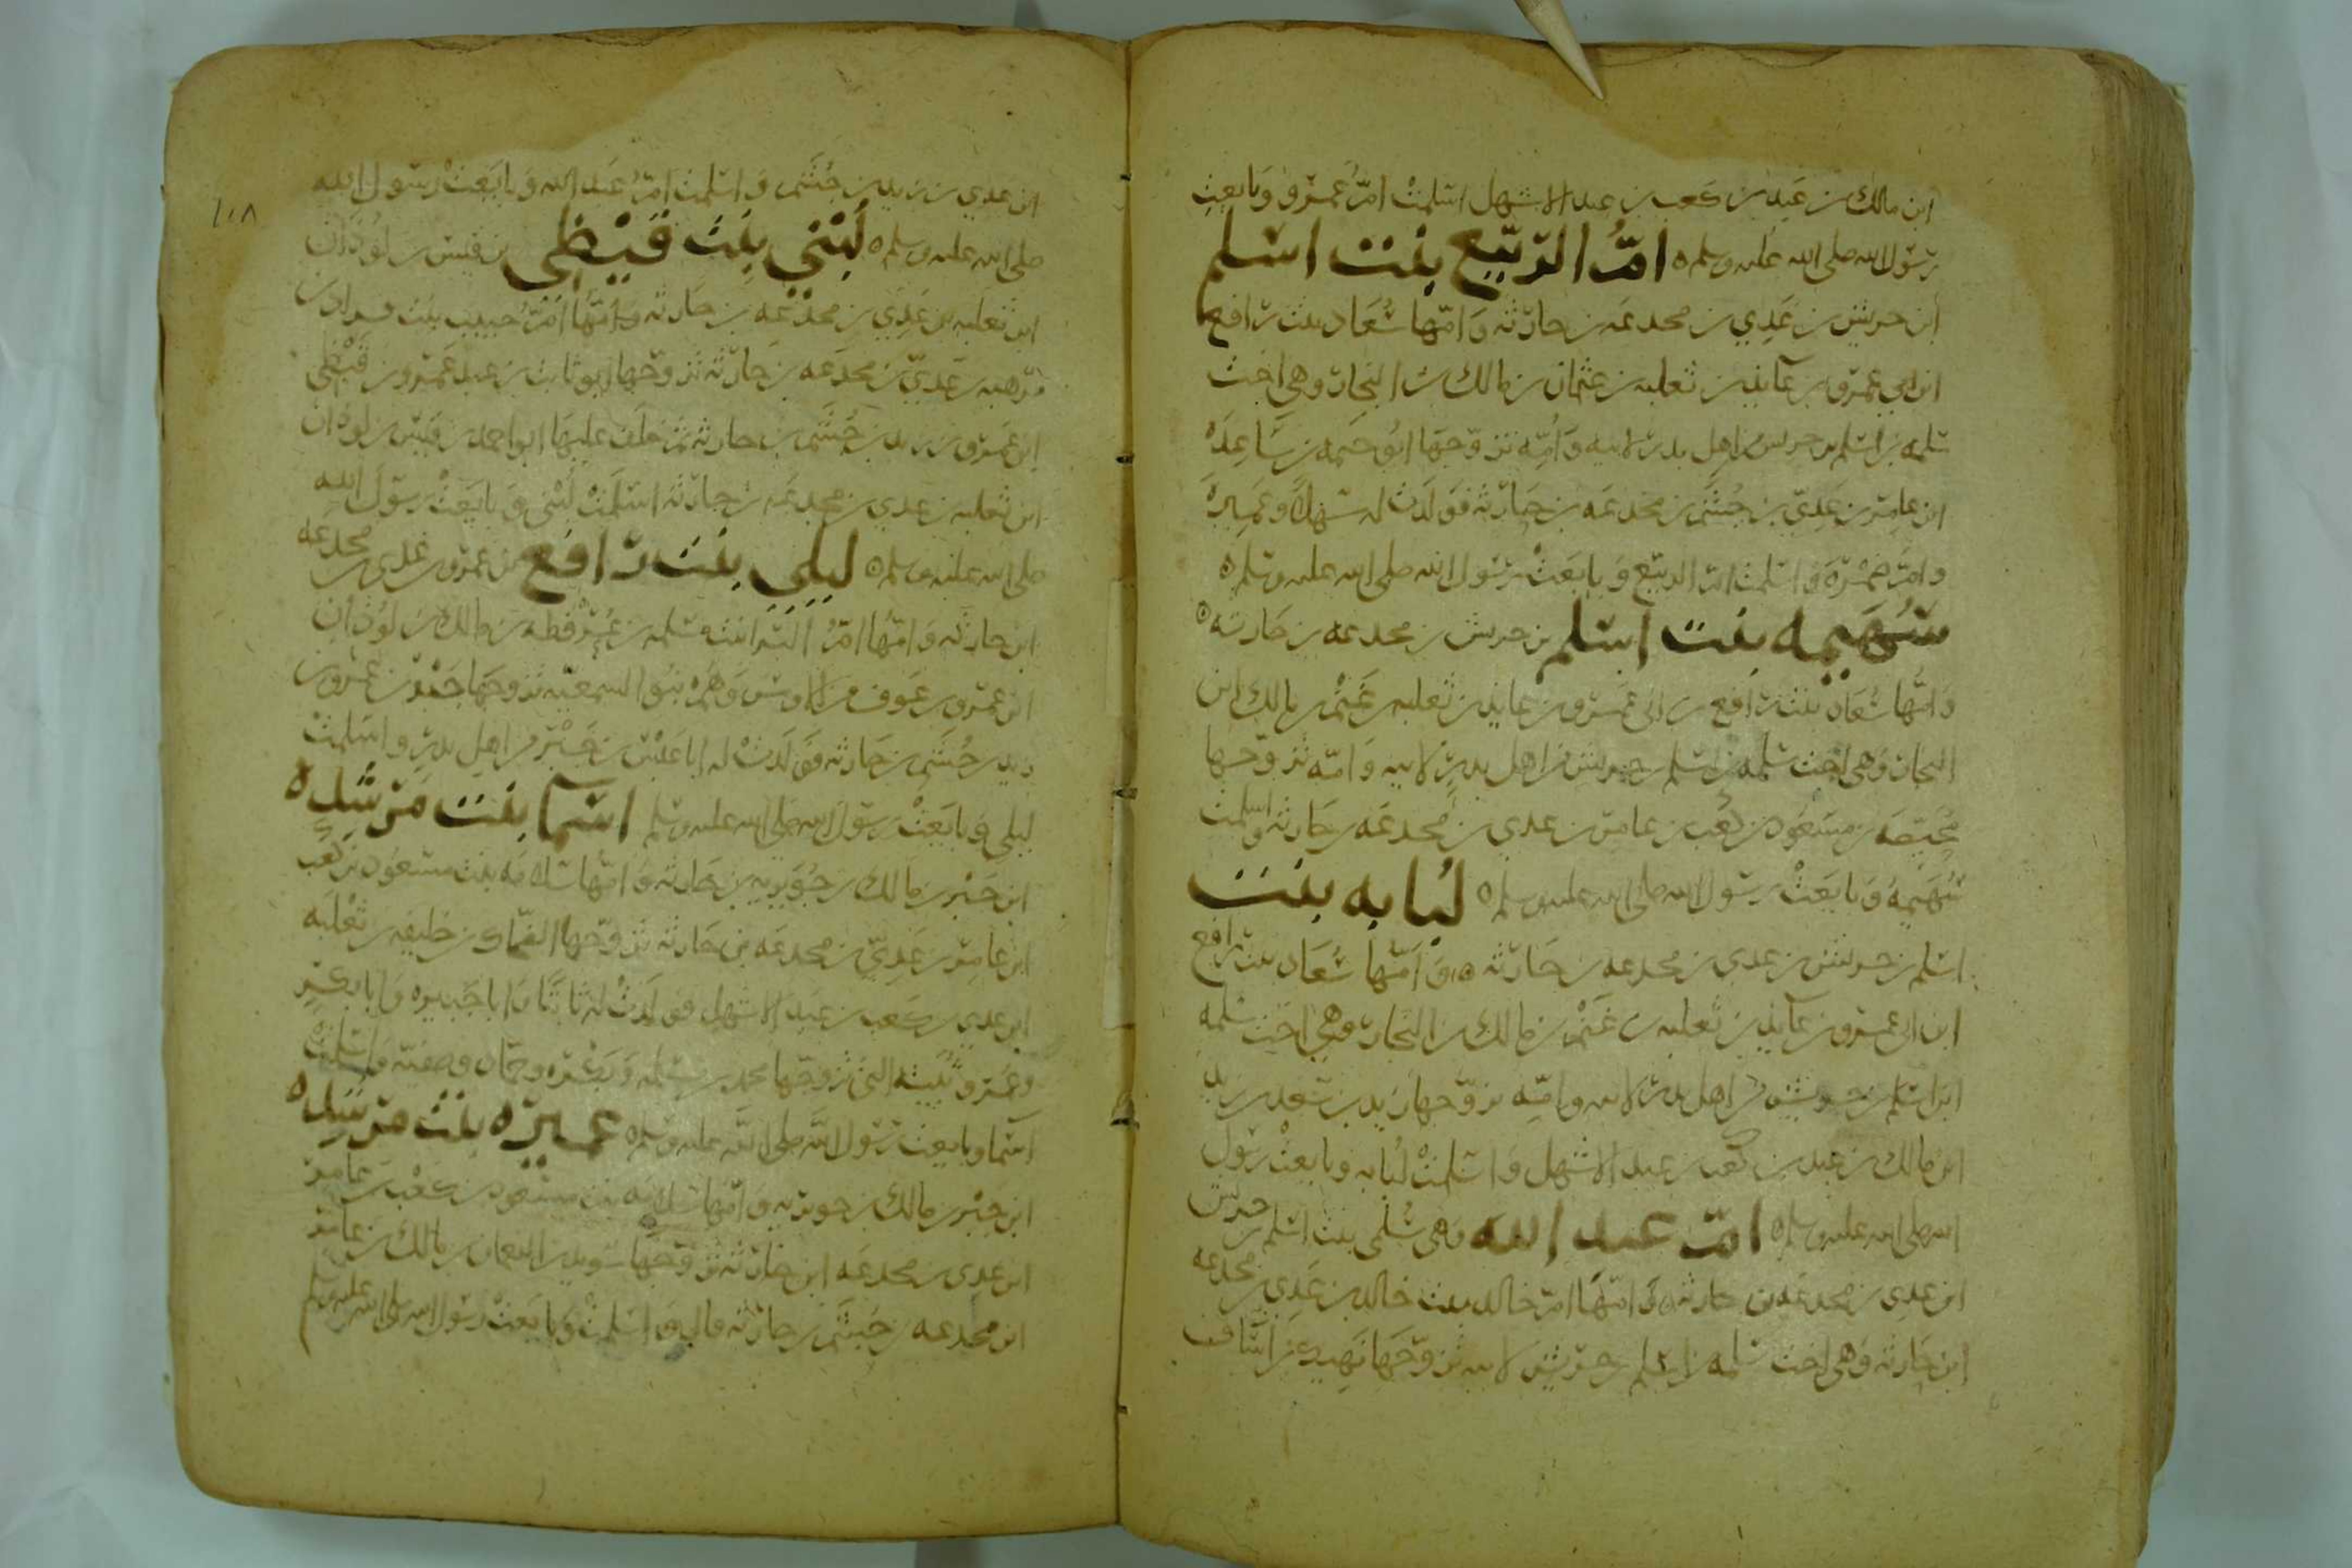 ابن مالك بن عبد بن كعب بن عبد الاشهل اسلمت امّ عمرو وبايعت
رسول الله صلى الله عليه وسلم ه امّ الربيع بنت اسلم
ابن حريش بن عدي بن مجدعه بن حارثه وامّها سُعاد بنت رافع
ابن ابي عمرو بن عايذ بن ثعلبه بن عثمان بن مالك بن النجار وهي اخت
سلمه بن اسلم بن حريس من اهل بدر لابيه وامّه تزوّجها ابو حثمه بن ساعده
ابن عامر بن عديّ بن جُشَم بن مجدعه بن حارثه فولدت له سهلا وعميره
وامّ ضمره واسلمت امّ الربيع وبايعت رسول الله صلى الله عليه وسلم ه
سُهَيمه بنت اسلم بن حريش بن مجدعه بن حارثه ه
وامّها سُعاد بنت رافع بن ابي عمرو بن عايذ بن ثعلبه بن غَنْم بن مالك ابن
النجار وهي اخت سلمه بن اسلم بن حريش من اهل بدر لابيه وامّه تزوّجها
مُحَيّصه بن مسعود بن كعب بن عامر بن عدي بن مجدعه بن حارثه واسلمت
سُهَيمه وبايعت رسول الله صلى الله عليه وسلم ه لُبابه بنت
اسلم بن حريش بن عدي بن مجدعه بن حارثه ه وامّها سُعاد بنت رافع
ابن ابي عمرو بن عايذ بن ثعلبه بن غَنْم بن مالك بن النجار وهي اخت سلمه
ابن اسلم بن حريش من اهل بدر لابيه وامّه تزوّجها زيد بن سعد بن زيد
ابن مالك بن عبد بن كعب بن عبد الاشهل واسلمت لُبابه وبايعت رسول
الله صلى الله عليه وسلم ه امّ عبد الله وهي سُلمى بنت اسلم بن حريش
ابن عدي بن مجدعه بن حارثه وامّها امّ خالد بنت خالد بن عدي بن مجدعه
ابن حارثه وهي اخت سلمه بن اسلم بن حريش لابيه تزوّجها نهيك بن اساف
١٠٨
ابن عدي بن زيد بن جُشَم واسلمت امّ عبد الله وبايعت رسول الله
صلى الله عليه وسلم ه لُبْنى بنت قَيْظي بن قيس بن لوذان
ابن ثعلبه بن عدي بن مجدعه بن حارثه وامّها امّ حبيب بنت
بن عديّ بن مجدعه بن حارثه تزوّجها ابو ثابت بن عبد عمرو بن قَيْظي
ابن عمرو بن زيد بن جُشَم بن حارثه ثم خلف عليها ابو احمد بن قيس بن لوذان
ابن ثعلبه بن عدي بن مجدعه بن حارثه اسلمت لُبْنى وبايعت رسول الله
صلى الله عليه وسلم ه ليلى بنت رافع بن عمرو بن عدي بن مجدعه
ابن حارثه وامّها امّ البراء بنت سلمه بن عُرْفطه بن مالك بن لوذان
ابن عمرو بن عوف من الاوس وهم بنو السميعه تزوجها جَبْر بن عمرو بن
زيد بن جُشَم بن حارثه فولدت له ابا عَبْس بن جَبْر من اهل بدر واسلمت
ليلى وبايعت رسول الله صلى الله عليه وسلم اسما بنت مرشده ه
ابن جَبْر بن مالك بن جويريه بن حارثه وامّها سلامه بنت مسعود بن كعب
ابن عامر بن عديّ بن مجدعه بن حارثه تزوّجها الضحاك بن خليفه بن ثعلبه
ابن عدي بن كعب بن عبد الاشهل فولدت له ثابتا وابا جبيره وابا بكر
وعمر وثُبَيته التي تزوجها محمد بن مسلمه وبكره وحمّاده وصفيّه واسلمت
اسما وبايعت رسول الله صلى الله عليه وسلم ه عميره بنت مرشده ه
ابن جَبْر بن مالك بن جويريه وامّها سلامه بنت مسعود بن كعب بن عامر
ابن عدي بن مجدعه ابن حارثه تزوّجها سويد بن النعمان بن مالك بن عامر
ابن مجدعه بن جُشَم بن حارثه قال واسلمت وبايعت رسول الله صلى الله عليه وسلم